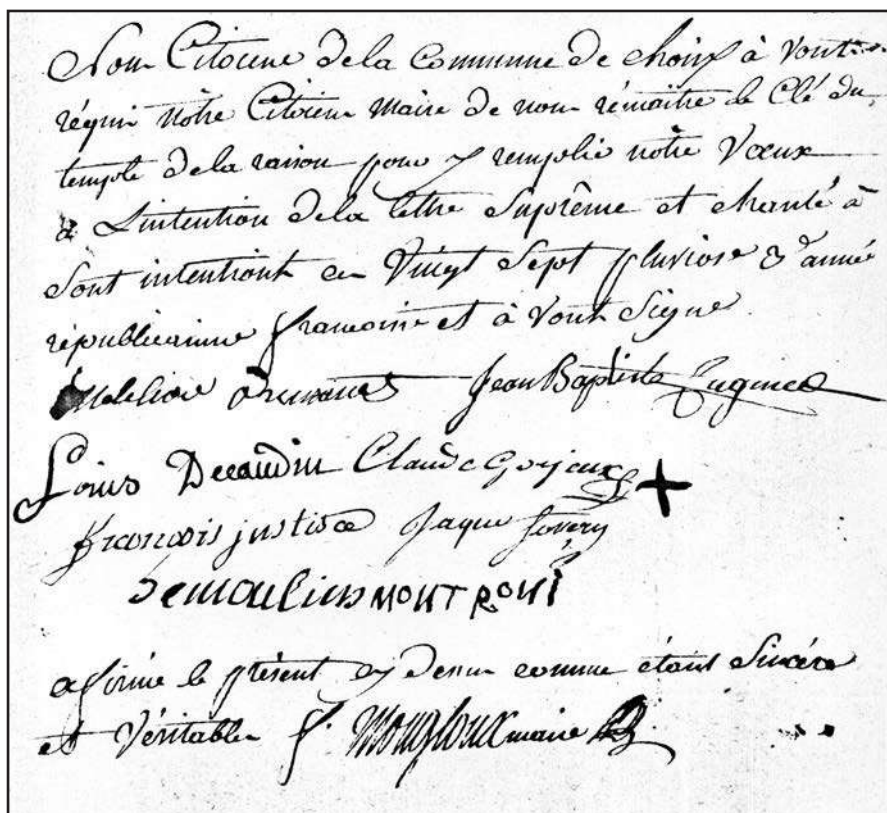 Nous Citoiens de la Commune de choisy à vont
réquis nôtre Citoien maire de nous rémaître la Clé du
temple de la raison pour y remplie nôtre Vœux
a Lintention de la lettre Suprême et chanté à
Sont intentiont en Vingt Sept pluviose 3e année
républicainne francoise et à vont Signe
Jean Baptiste
Louis Decaudin Claude +
francois justice Jaque
Demoulins MONTRONI
afirme le présent cy dessus comme étant Sincére
et Véritable maire